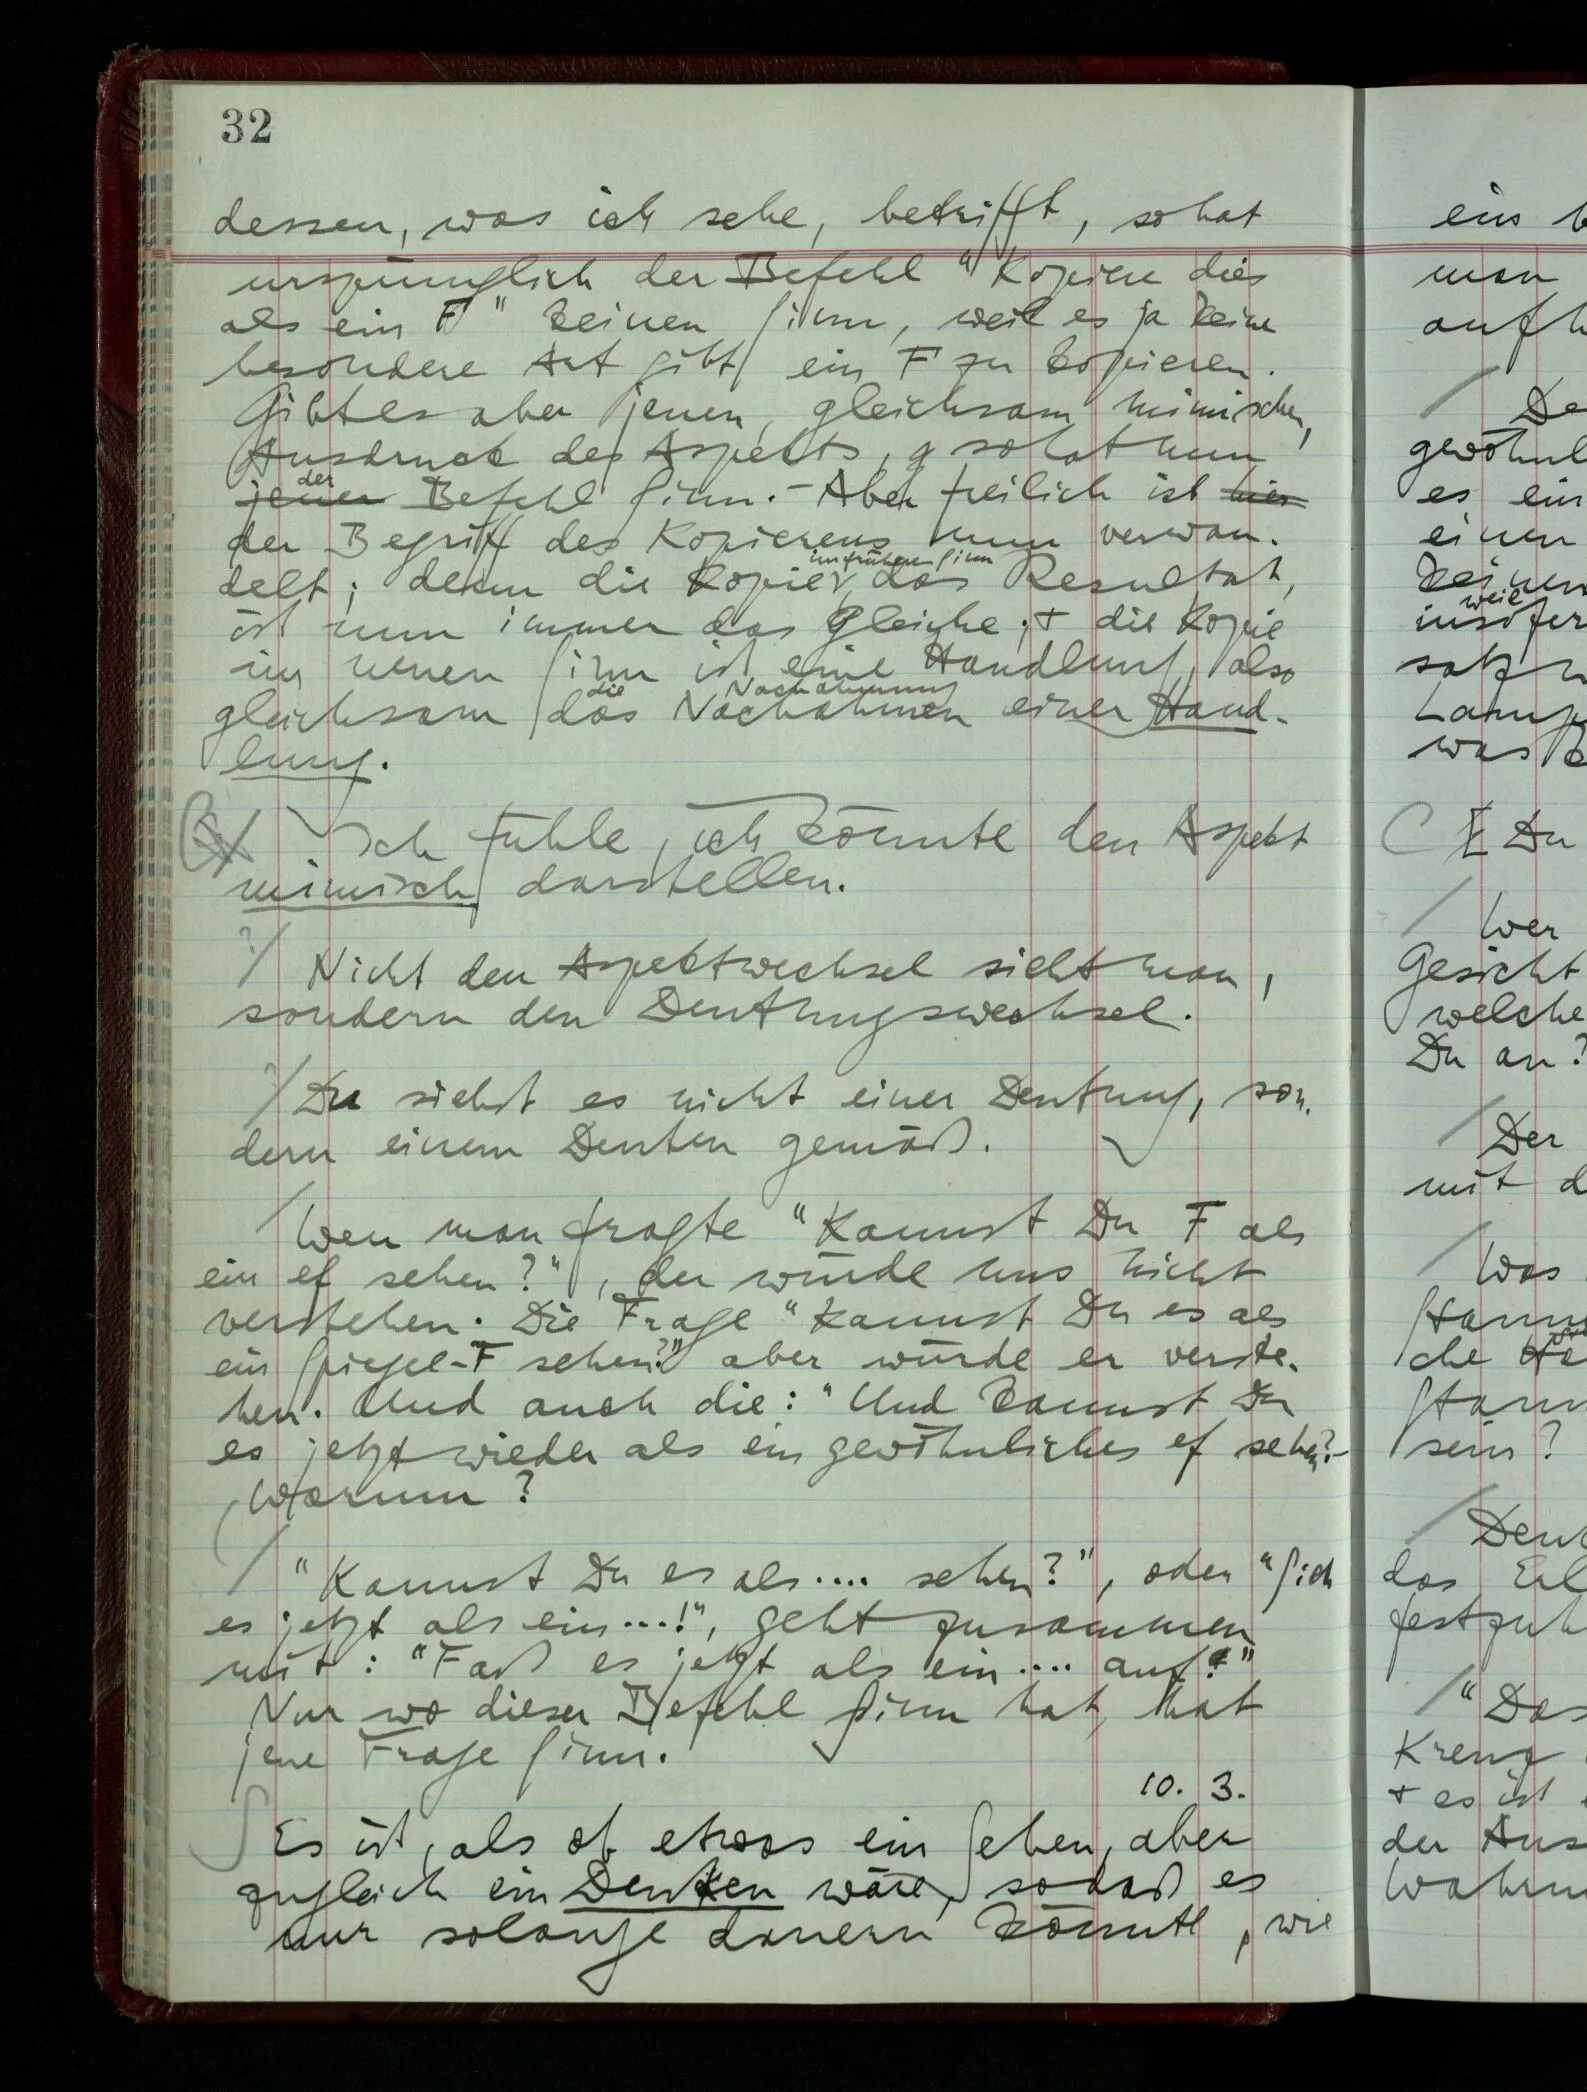 32
dessen, was ich sehe, betrifft, so hat
ursprünglich der Befehl "Kopiere dies
als ein F" keinen Sinn, weil es ja keine
besondere Art gibt ein F zu kopieren.
Gibt es aber jenen, gleichsam mimischen,
Ausdruck des Aspekts, so hat nun
der
jener Befehl Sinn. – Aber freilich ist hier
der Begriff des Kopierens nun verwan-
im frühern Sinn
delt; denn die Kopie, das Resultat,
ist nun immer das Gleiche; + die Kopie
im neuen Sinn ist eine Handlung, also
die Nachahmung
gleichsam das Nachahmen einer Hand-
lung.
Ich fühle, ich könnte den Aspekt
mimisch darstellen.
?/ Nicht den Aspektwechsel sieht man,
sondern den Deutungswechsel.
?/ Du siehst es nicht einer Deutung, son-
dern einem Deuten gemäß.
/ Wen man fragte "Kannst Du F als
ein ef sehen?", der würde uns nicht
verstehen. Die Frage "Kannst Du es als
ein Spiegel-F sehen?" aber würde er verste-
hen. Und auch die: "Und kannst Du
es jetzt wieder als ein gewöhnliches ef sehen? –
Warum?
/ "Kannst Du es als .... sehen?", oder "Sieh
es jetzt als ein ...!", geht zusammen
mit: "Faß es jetzt als ein .... auf!"
Nur wo dieser Befehl Sinn hat, hat
jene Frage Sinn.
10. 3.
Es ist, als ob etwas ein Sehen, aber
zugleich ein Denken wäre, sodaß es
nur solange dauern könnte, wie
ein
man
/
gewöhnl
es ein
einen
keinen
weil
insofer
satz
Lamp
was
C [ Du
/ Wer
Gesicht
welche
Du an?
/ Der
mit d
/ Was
che
sein?
/
das
festzuh
/ "Das
Kreuz
+ es ist
der Aus
Wahrn